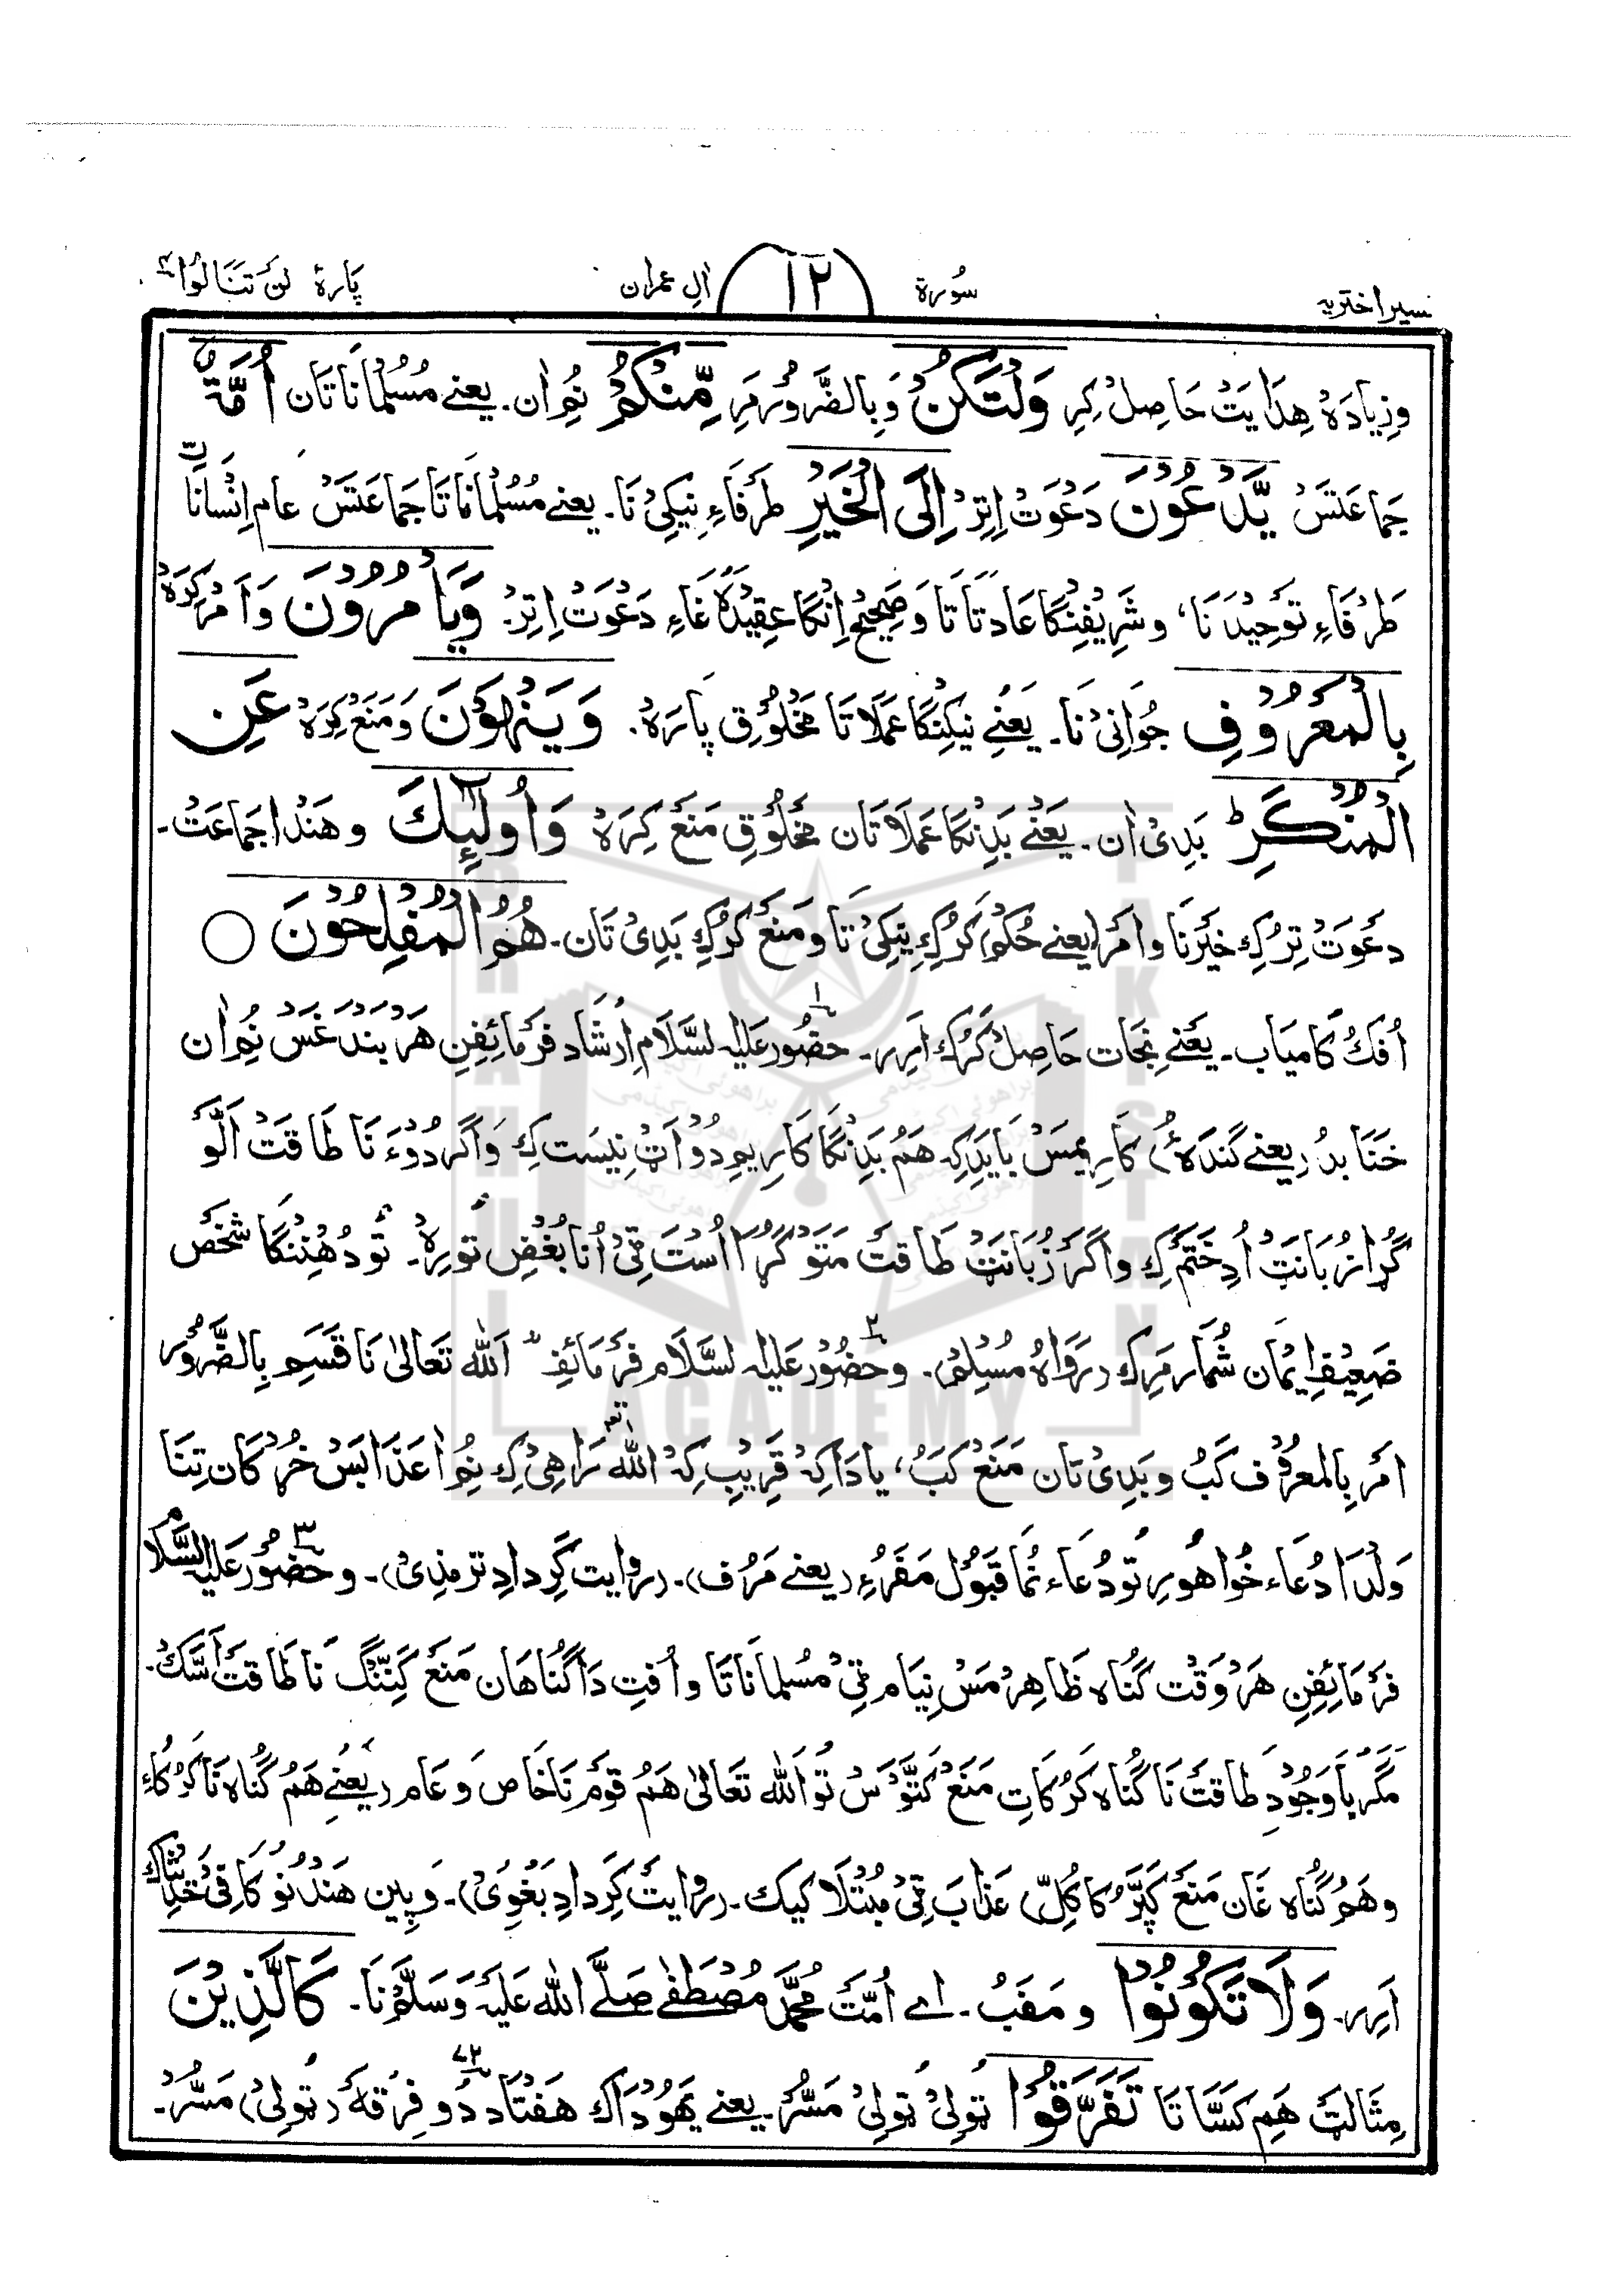 سیر اختریہ سُورة ١٢ اٰلِ عمران پَارۂ لَن تَنَالُوا ۴
وزِیادَہ هِدَایَتْ حَاصِلْ کِرِ وَلْتَكُنْ وَبِالضَّرُورمَرِ مِّنْكُمْ نُم اٰن۔ یعنے مُسُلمانَاتَان اُمَّةٌ
جَماعَتَسْ يَّدْعُوْنَ دَعْوَتْ اِتِرْ اِلَى الْخَيْرِ طَرَفَاءِ نِیکِیْ نَا۔ یعنے مُسْلمانَاتَا جَماعَتَسْ عام اِنْسانَاتِ
طَرْفَاءِ تَوحِیْدَ نَا، وشَرِیْفِنگَا عَادَتَاتَا وَصَحِیْح اِنْگَا عقِیْدَہْ غَاءِ دَعْوَتْ اِتِرْ۔ وَيَأْمُرُوْنَ وَاَمْر کِرَہْ
بِالْمَعْرُوْفِ جُوَانِیْ نَا۔ یَعْنے نیکِنگا عَمَلاتَا مَخْلُوْقِ پَارَہْ۔ وَيَنْهَوْنَ وَمَنَعْ کِرَہْ عَنِ
الْمُنْكَرِ ؕ بَدِیْ اٰن۔ یَعْنے بَدِنگَا عَمَلَاتَان مَخْلُوْقِ مَنَعْ کِرَہْ وَاُولٰٓئِكَ و هَنْدا جَمَاعَتْ۔
دعْوَتْ تِرُکِ خَیْرنَا واَمْر (یعنے حُکْم) کَرُکِ نِیکِیْ تَا و مَنَعْ کَرُکِ بَدِیْ تَان۔ هُمُ الْمُفْلِحُوْنَ ○
اُفکْ کَامیَاب۔ یَعْنے نِجَات حَاصِلْ کَرُک اَرِر۔ ١ حضُور عَلَیہِ السَّلَام اِرْشَاد فَرمَائِفِن هَرْ بَنْدَغَسْ نُم اٰن
خَنَا بَدُ (یعنے گَندَہْ) کَارِیْمَسْ بَایَدِکِہ هَمْ بَدِنْگا کَارِیم دُوْاَتْ نِیسَت کِ وَاگَر دُوْءَ نَا طَاقَتْ اَلَّوْ
گُڑا زُبَانَتْ اُدِ خَتَمْ کِ واگَر زُبَانَتْ طَاقَتْ مَتَوْ گُڑا اُسْتَ ٹِیْ اُنَا بُغْضِ تَورِہْ۔ تَو دُهُنِنگَا شَخْصْ
ضَعِیْفِ اِیْمَان شُمَار مَرِکِ (رَوَاہُ مُسْلِمْ)۔ ٢ وحضُوْر عَلَیہِ السَّلَام فَرمَائِفِ اَللّٰه تَعَالىٰ نَا قَسَم بِالضَّرُوْر
اَمْر بِالمعْرُوْف کَبُ وبَدِیْ تَان مَنَعْ کَبُ، یا دَاکِہْ قَرِیْب کِہْ اللّٰه تع رَاهِیْ کِ نُم اعَذَابَسْ خُڑکَان تِنَا
وَلْدَا دُعَاء خُواهُورِ تَو دُعَاء نُمَا قَبُوْل مَفَرُءِ (یعنے مَرُف)۔ (روایت کَر دادِ ترمذِیْ)۔ ٣ وحضُوْر عَلَیہِ السَّلَام
فَرمَائِفِن هَرْوَقْت گُنَاه ظَاهِرْ مَسْ نِیَام ٹِیْ مُسْلِمانَاتَا واُفتِ دَا گُنَاهَان مَنَعْ کَنِنگ نَا طَاقتْ اَسَّکْ۔
مَگَر بَاوَجُوْدِ طَاقتْ نَا گُنَاه کَرُکَاتِ مَنَعْ کَتَّوسْ تَو اللّٰه تَعَالىٰ هَمْ قَوْم نَا خَاص وعَام (یَعْنے هَمْ گُنَاه نَا کَرُکَاءِ
وهَمْ گُنَاه غَان مَنَعْ کَپَّرُکَا کُلّ) عَذَابَ ٹِیْ مُبْتَلَا کیک۔ (روایتْ کَر دادِ بَغْوِیْ)۔ وَپِین هَنْدُنُو کَافِیْ حَدِیثَاک
اَرِر۔ وَلَا تَكُوْنُوْا ومَفَبُ۔ اے اُمَّتْ مُحَمَّدْ مُصْطَفٰے صَلَّے اللّٰه عَلَیْهِ وَسَلَّمْ نَا۔ كَالَّذِيْنَ
مِثَالَتْ هَمْ کَسَّاتَا تَفَرَّقُوْا تُولِیْ تُولِیْ مَسُّرْ۔ یعنے یَهُوْدَاک هَفْتَاد دُو ٧٢ فِرْقَهْ (تُولِیْ) مَسُّرْ۔